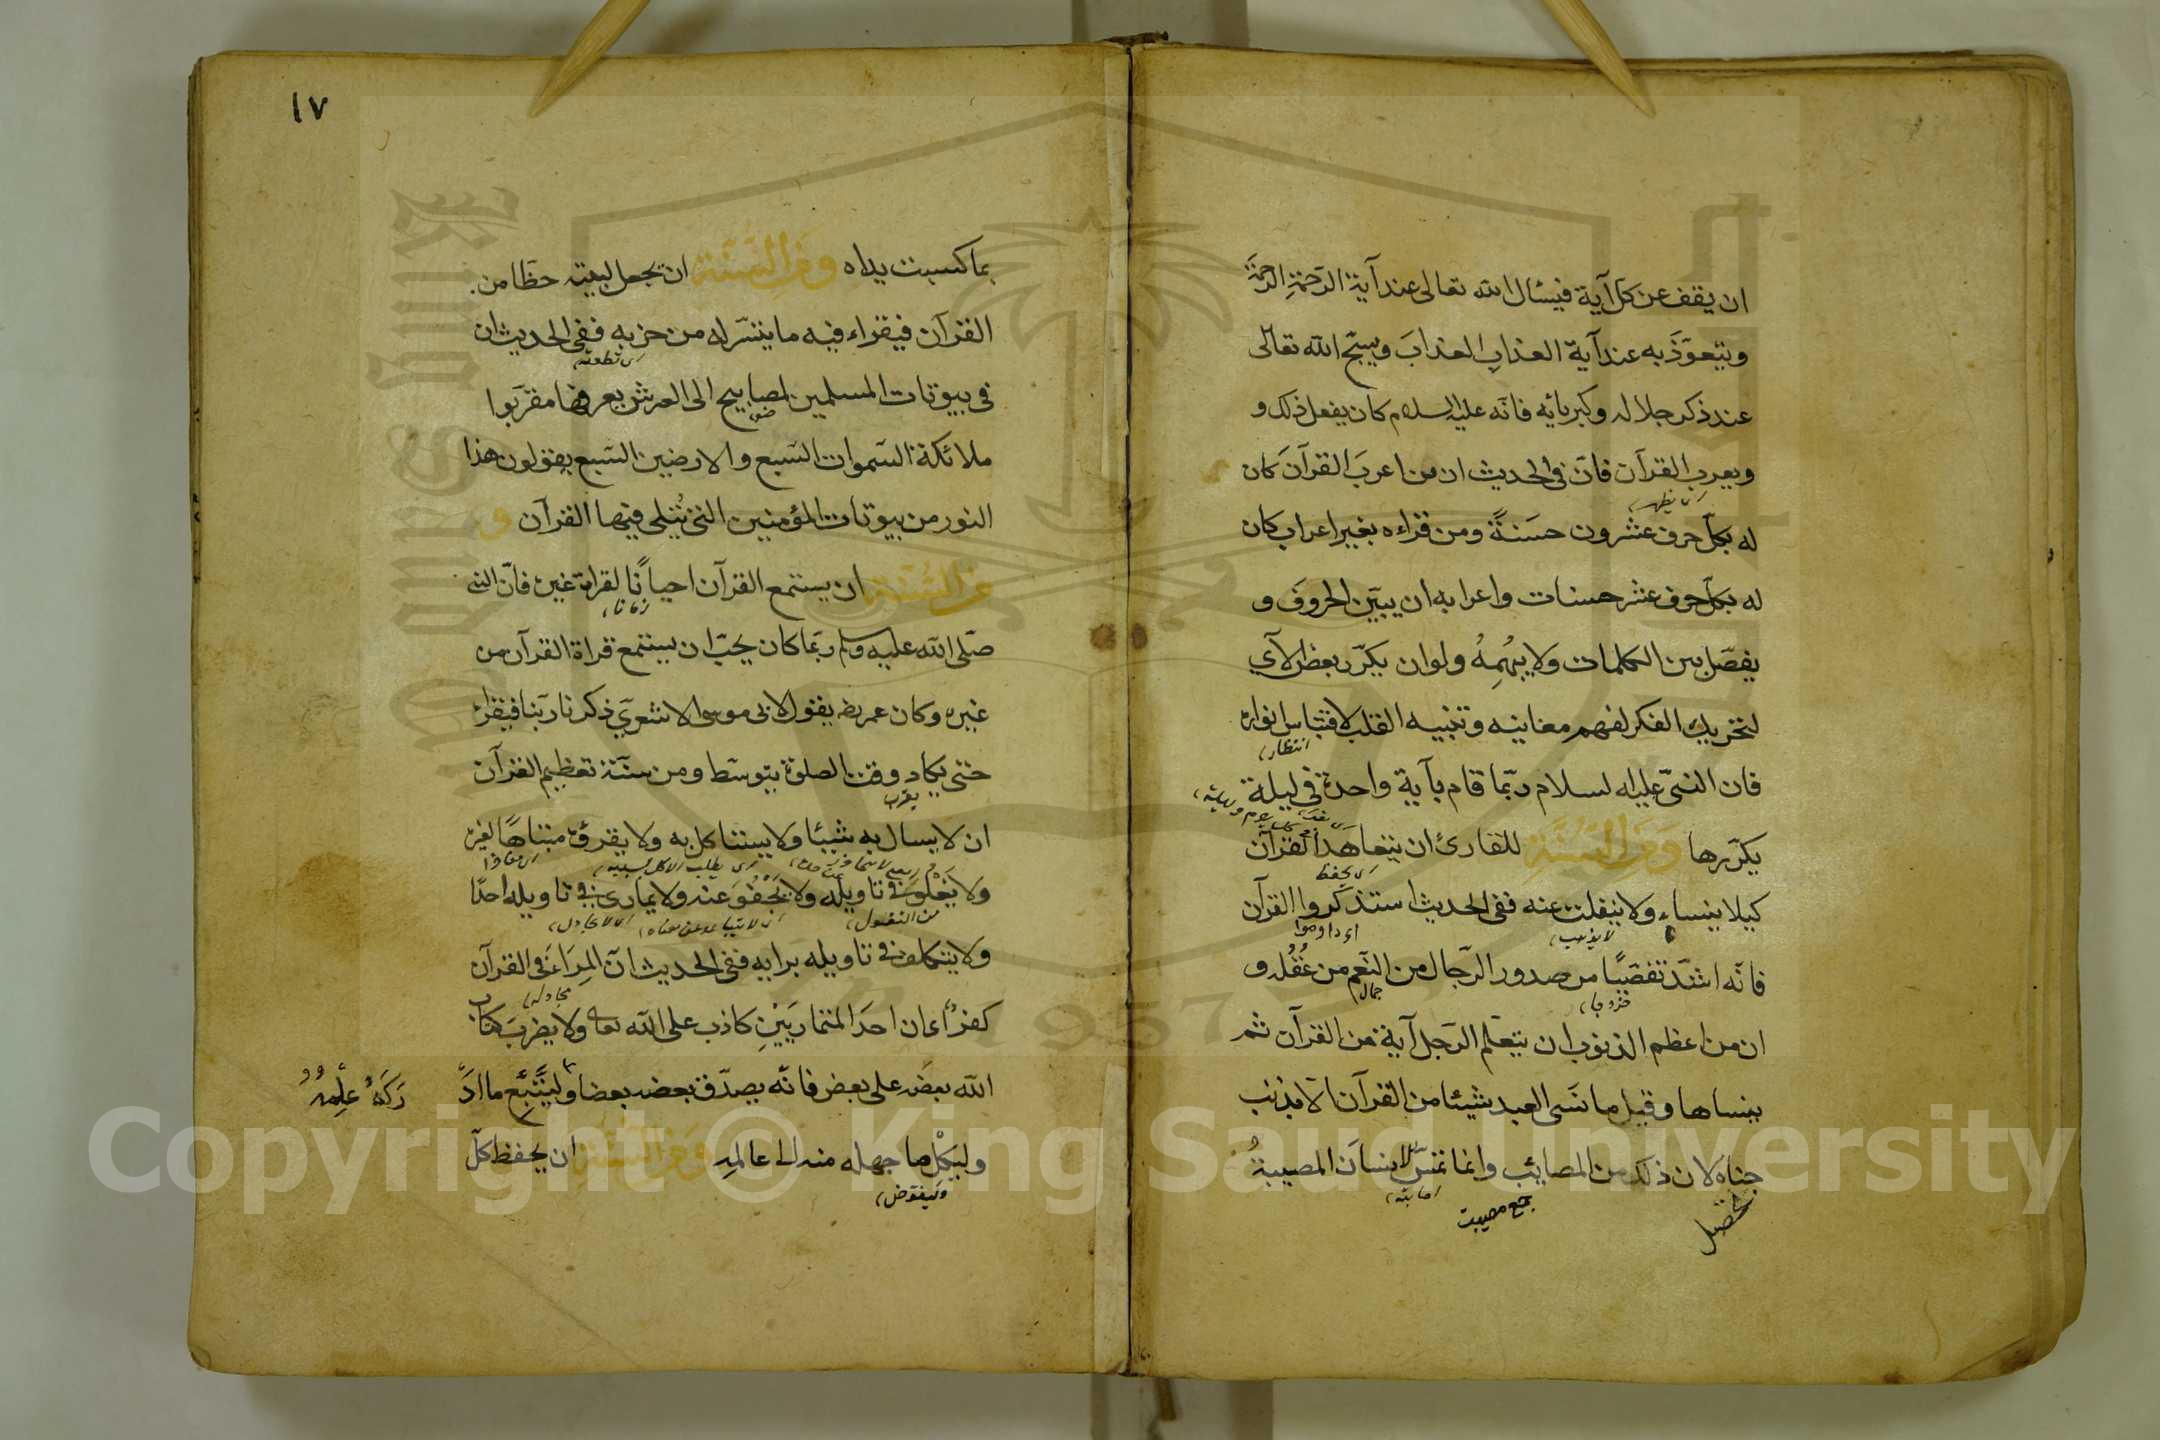 ان يقف عن كل آية فيسأل الله تعالى عند آية الرَّحْمَةِ الرَّحْمَةَ
ويتعوّذ به عند آية العذابِ العذابَ ويسبّح الله تعالى
عند ذكر جلاله وكبريائه فانّه عليه السلام كان يفعل ذلك و
ويعرب القرآن فانّ في الحديث ان من اعربَ القرآنَ كان
اى يظهر
له بكلّ حرف عشرون حسَنةً ومن قراءه بغير اعراب كان
له بكلّ حرف عشر حسنات واعرابه ان يبيّن الحروفَ و
يفصّل بين الكلمات ولا يبهُمِهُ ولو ان يكرّر بعض الآي
لتحريك الفكر لفهم معانيه وتنبيه القلب لاقتباس انواره
انتظار
فان النبىّ عليه السلام ربّما قام بآية واحدة في ليلة
يكرّرها وَمِنَ السُّنَّةِ للقارئ ان يتعاهَدَ القرآن
اى يحفظ
كيلا ينساه ولا يتفلت عنه ففي الحديث استذكروا القرآن
لا يذهب
اى داوموا
فانّه اشدّ تفصّيًا من صدور الرّجال من النَّعم من عُقُله و
خروجا
جمال
ان من اعظم الذنوب ان يتعلّم الرّجل آية من القرآن ثم
ينساها وقيل ما نسَى العبد شيئا من القرآن الّا بذنب
جناه لان ذلك من المصائب وانما تمسّ الانسانَ المصيبةُ
اصابته
جمع مصيبت
١٧
بما كسبت يداه وَمِنَ السُّنَّةِ ان يجعل لبيته حظّا من
القرآن فيقراء فيه ما يتسّر له من حزبه ففي الحديث ان
اى قطعته
في بيوتات المسلمين لمصابيح الى العرش يعرفها مقرّبوا
ضوء
ملائكة السّموات السّبع والارضين السّبع يقولون هذا
النور من بيوتات المؤمنين التي تُتلى فيها القرآن و
من السُّنّة ان يستمع القرآن احيانًا لقراة غيره فانّ النبي
زمانا
صلّى الله عليه وسلم ربّما كان يحبّ ان يستمع قراة القرآن من
غيره وكان عمر رضه يقول لابى موسى الاشعريّ ذكرنا ربّنا فيقراء
حتى يكاد وقت الصلوة يتوسّط ومن سنّة تعظيم القرآن
يقرب
ان لا يسال به شيئا ولا يستاكل به ولا يقرؤه متباهًا لغيره
اى يطلب الاكل بسببه
اى مفاخرا
ولا يَغْلُوَ في تاويله ولا يَجْفُوَ عنه ولا يمارى في تاويله احدًا
من الغلول
اى لا يتباعد عن معناه
اى لا يجادل
ولا يتكلف في تاويله برايه ففي الحديث انّ المِرَاءَ في القرآن
مجادله
كفرٌ اى ان احدَ المتماريَيْنِ كاذب على الله تعالى ولا يضربَ كتاب
الله بعضَه على بعض فانّه يصدّق بعضه بعضا وليتّبع ما ادَّ
رَكَهُ عِلْمُهُ
وليَكِلْ ما جهله منه الى عالمِه وَمِنَ السُّنَّةِ ان يحفظ كلّ
وليفوّض
Copyright © King Saud University
1957